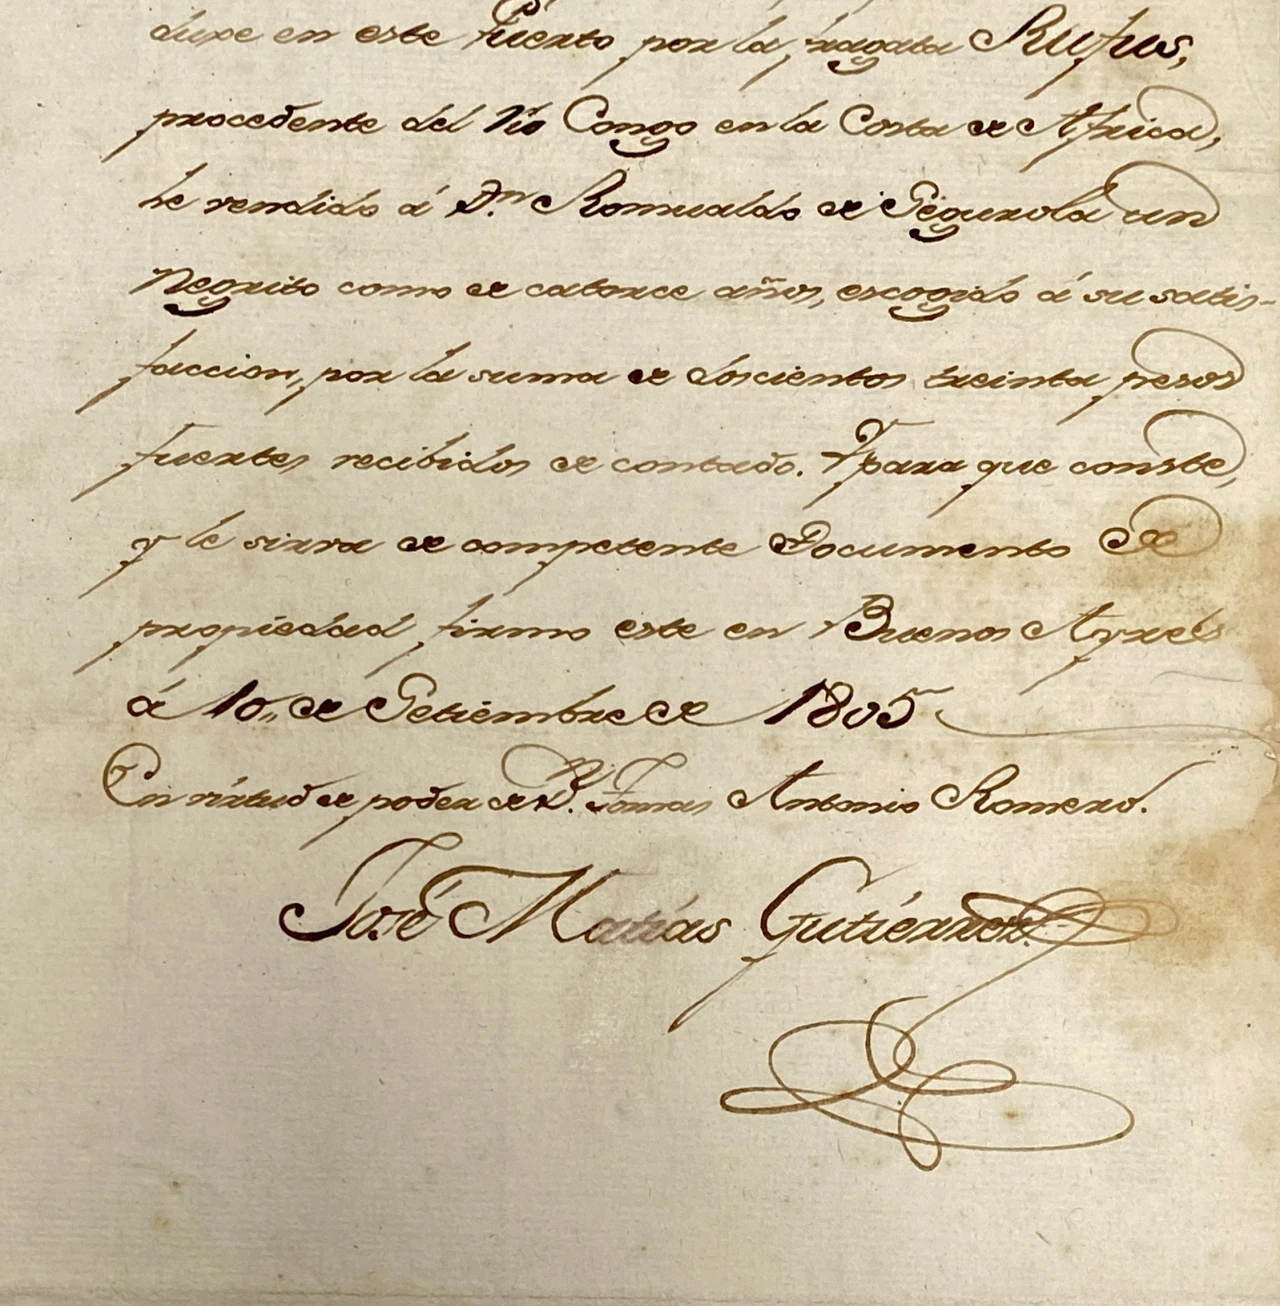 duxe en este Puerto por la fragata Rufus,
procedente del Rio Congo en la Costa de Africa,
he vendido á Dn. Romualdo de Segurola un
Negrito como de catorce años, escogido á su satis-
faccion, por la suma de doscientos treinta pesos
fuertes recibidos de contado. Y para que conste,
y le sirva de competente Documento de
propiedad firmo este en Buenos Ayres
á 10,, de Setiembre de 1805
En virtud de poder de D. Tomas Antonio Romero.
José Matías Gutiérrez.